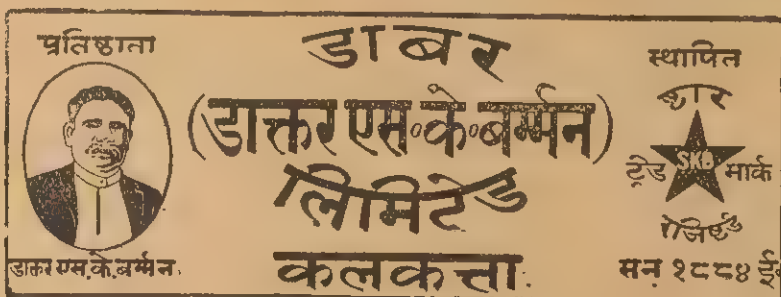 प्रतिष्ठाता
डाक्तर एस.के.बर्म्मन
डाबर
(डाक्तर एस॰के॰बर्म्मन)
लिमिटेड
कलकत्ता
स्थापित
ष्टार
ट्रेड SKB मार्क
रेजिष्टर्ड
सन् १८८४ ई॰